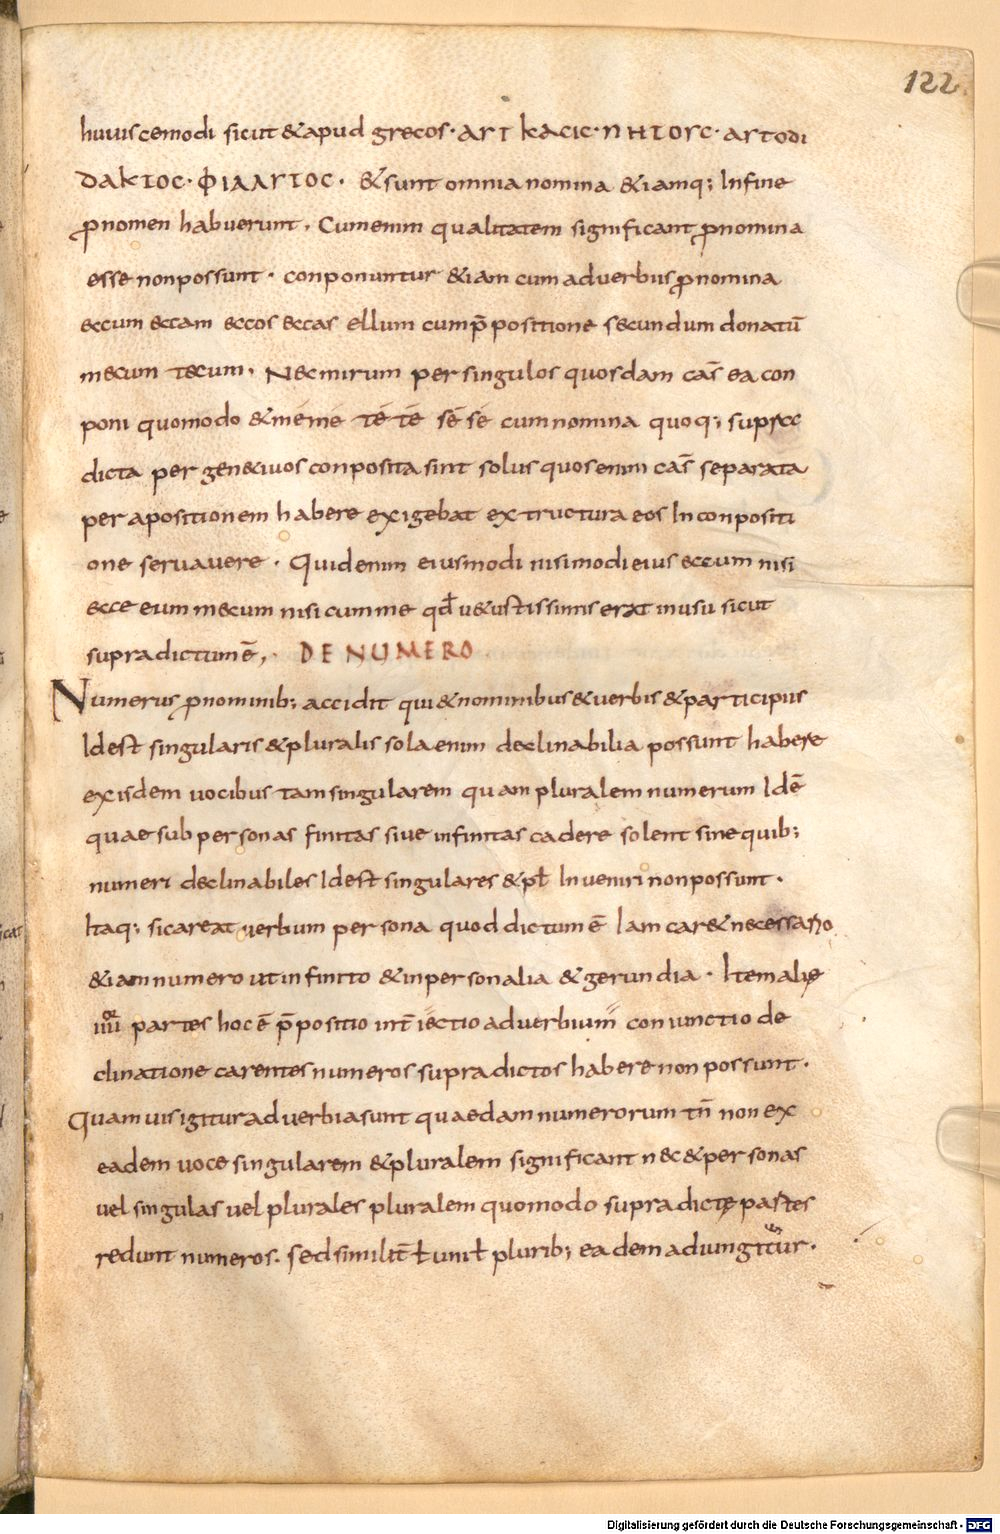 122
huiuscemodi sicut & apud grecos · ΑΓΙ ΚΑCΙC · ΠΗΙΟΓC · ΑΓΤΟΔΙ
ΔΑΚΙΟC · ΦΙΑΛΓΙΟC · & sunt omnia nomina &iamq; In fine
p̱nomen habuerunt . Cum enim qualitatem significant p̱nomina
esse non possunt · conponuntur &iam cum adverbiis p̱nomina
eccum eccam eccos eccas ellum cum p̄positione secundum donatū
mecum tecum . Nec mirum per singulos quosdam cas̄ ea con
poni quomodo & méme téte sésé cum nomina quoq; supra
dicta per gen&ivos conposita sint solus quos enim cas̄ separata
per apositionem habere exigebat extructura eos In conpositi
one servavere · Quid enim eiusmodi nisi modi eius eccum nisi
ecce eum mecum nisi cum me qđ u&ustissimis erat in usu sicut
supra dictum ē, · DE NUMERO
Numerus p̱nominib; accidit qui & nominibus & verbis & participiis
Idest singularis & pluralis sola enim declinabilia possunt habere
ex isdem uocibus tam singularem quam pluralem numerum Idē
quae sub personas finitas sive infinitas cadere solent sine quib;
numeri declinabiles Idest singulares & pł Inveniri non possunt ·
Itaq; si careat verbum persona quod dictum ē Iam car& necessario
&iam numero ut infinito & inpersonalia & gerundia · Item alię
iiii partes hoc ē p̄positio int̄iectio adverbium coniunctio de
clinatione carentes numeros supra dictos habere non possunt ·
Quamvis igitur adverbia sunt quaedam numerorum tn̄ non ex
eadem voce singularem & pluralem significant nec & personas
vel singulas vel plurales pluralem quomodo supra dictę partes
redunt numeros . sed similit̄ ł uni ł plurib; eadem adiungitur ·
Digitalisierung gefördert durch die Deutsche Forschungsgemeinschaft - DFG